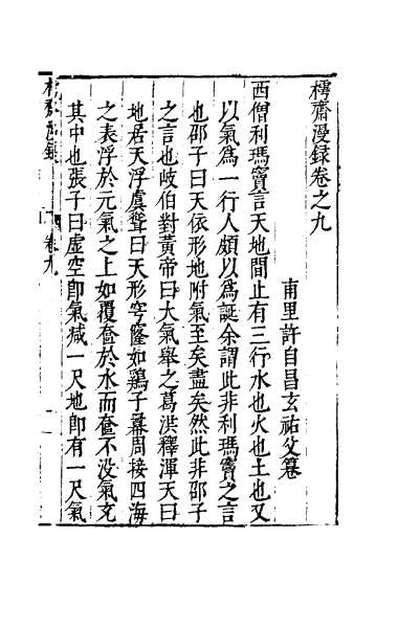 樗齋漫録卷之九
甫里許自昌玄祐父篹
西僧利瑪竇言天地間止有三行水也火也土也又
以氣為一行人頗以為誕余謂此非利瑪竇之言
也邵子曰天依形地附氣至矣盡矣然此非邵子
之言也岐伯對黃帝曰大氣舉之葛洪釋渾天曰
地居天浮虞聳曰天形穹窿如鷄子幕周接四海
之表浮於元氣之上如覆奩於水而奩不没氣充
其中也張子曰虛空卽氣减一尺地卽有一尺氣
卷九